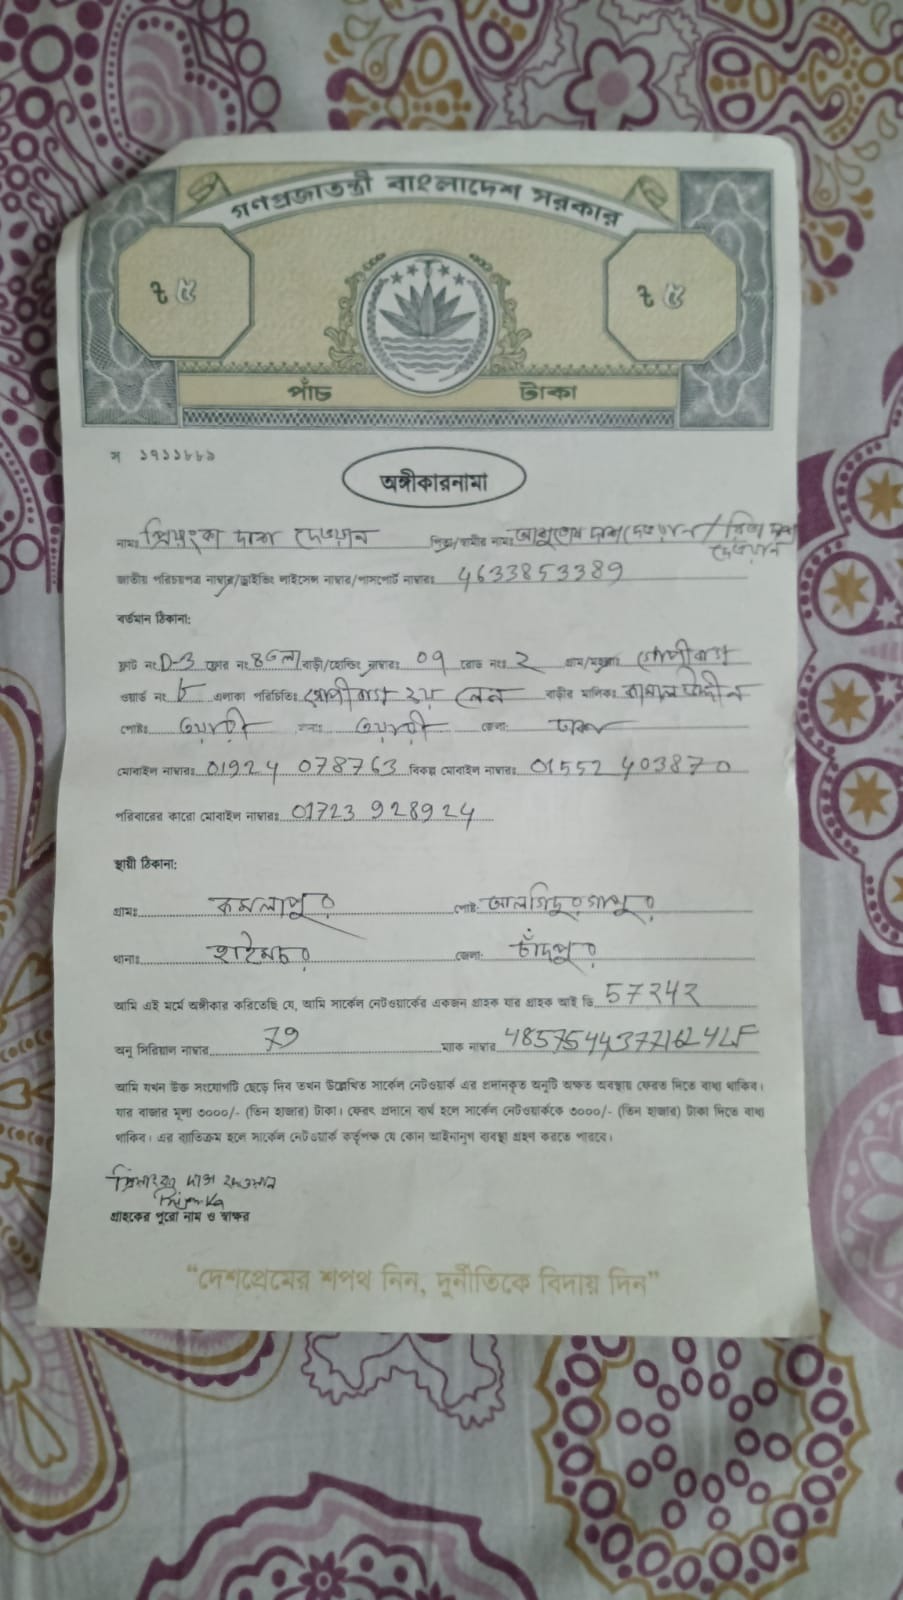 গণপ্রজাতন্ত্রী বাংলাদেশ সরকার
৳ ৫ ৳ ৫
পাঁচ টাকা
স ১৭১১৮৮৯
অঙ্গীকারনামা
নামঃ প্রিয়ংকা দাশ দেওয়ান পিতা/স্বামীর নামঃ আশুতোষ দাশ দেওয়ান/ রিতা দাশ
দেওয়ান
জাতীয় পরিচয়পত্র নাম্বার/ড্রাইভিং লাইসেন্স নাম্বার/পাসপোর্ট নাম্বারঃ 4633853389
বর্তমান ঠিকানা:
ফ্লাট নং D-3 ফ্লোর নং ৪র্থ তলা বাড়ী/হোল্ডিং নাম্বারঃ 09 রোড নংঃ 2 গ্রাম/মহল্লাঃ গোপীবাগ
ওয়ার্ড নং ৮ এলাকা পরিচিতিঃ গোপীবাগ ২য় লেন বাড়ীর মালিকঃ কামাল উদ্দীন
পোষ্টঃ ওয়ারী থানাঃ ওয়ারী জেলা: ঢাকা
মোবাইল নাম্বারঃ 01924 078763 বিকল্প মোবাইল নাম্বারঃ 01552 403870
পরিবারের কারো মোবাইল নাম্বারঃ 01723 928924
স্থায়ী ঠিকানা:
গ্রামঃ কমলাপুর পোষ্ট:
থানাঃ হাইমচর জেলা: চাঁদপুর
আমি এই মর্মে অঙ্গীকার করিতেছি যে, আমি সার্কেল নেটওয়ার্কের একজন গ্রাহক যার গ্রাহক আই ডি 57242
অনু সিরিয়াল নাম্বার 79 ম্যাক নাম্বার
আমি যখন উক্ত সংযোগটি ছেড়ে দিব তখন উল্লেখিত সার্কেল নেটওয়ার্ক এর প্রদানকৃত অনুটি অক্ষত অবস্থায় ফেরত দিতে বাধ্য থাকিব।
যার বাজার মূল্য ৩০০০/- (তিন হাজার) টাকা। ফেরৎ প্রদানে ব্যর্থ হলে সার্কেল নেটওয়ার্ককে ৩০০০/- (তিন হাজার) টাকা দিতে বাধ্য
থাকিব। এর ব্যাতিক্রম হলে সার্কেল নেটওয়ার্ক কর্তৃপক্ষ যে কোন আইনানুগ ব্যবস্থা গ্রহণ করতে পারবে।
প্রিয়াংকা দাশ দেওয়ান
Priyanka
গ্রাহকের পুরো নাম ও স্বাক্ষর
“দেশপ্রেমের শপথ নিন, দুর্নীতিকে বিদায় দিন”